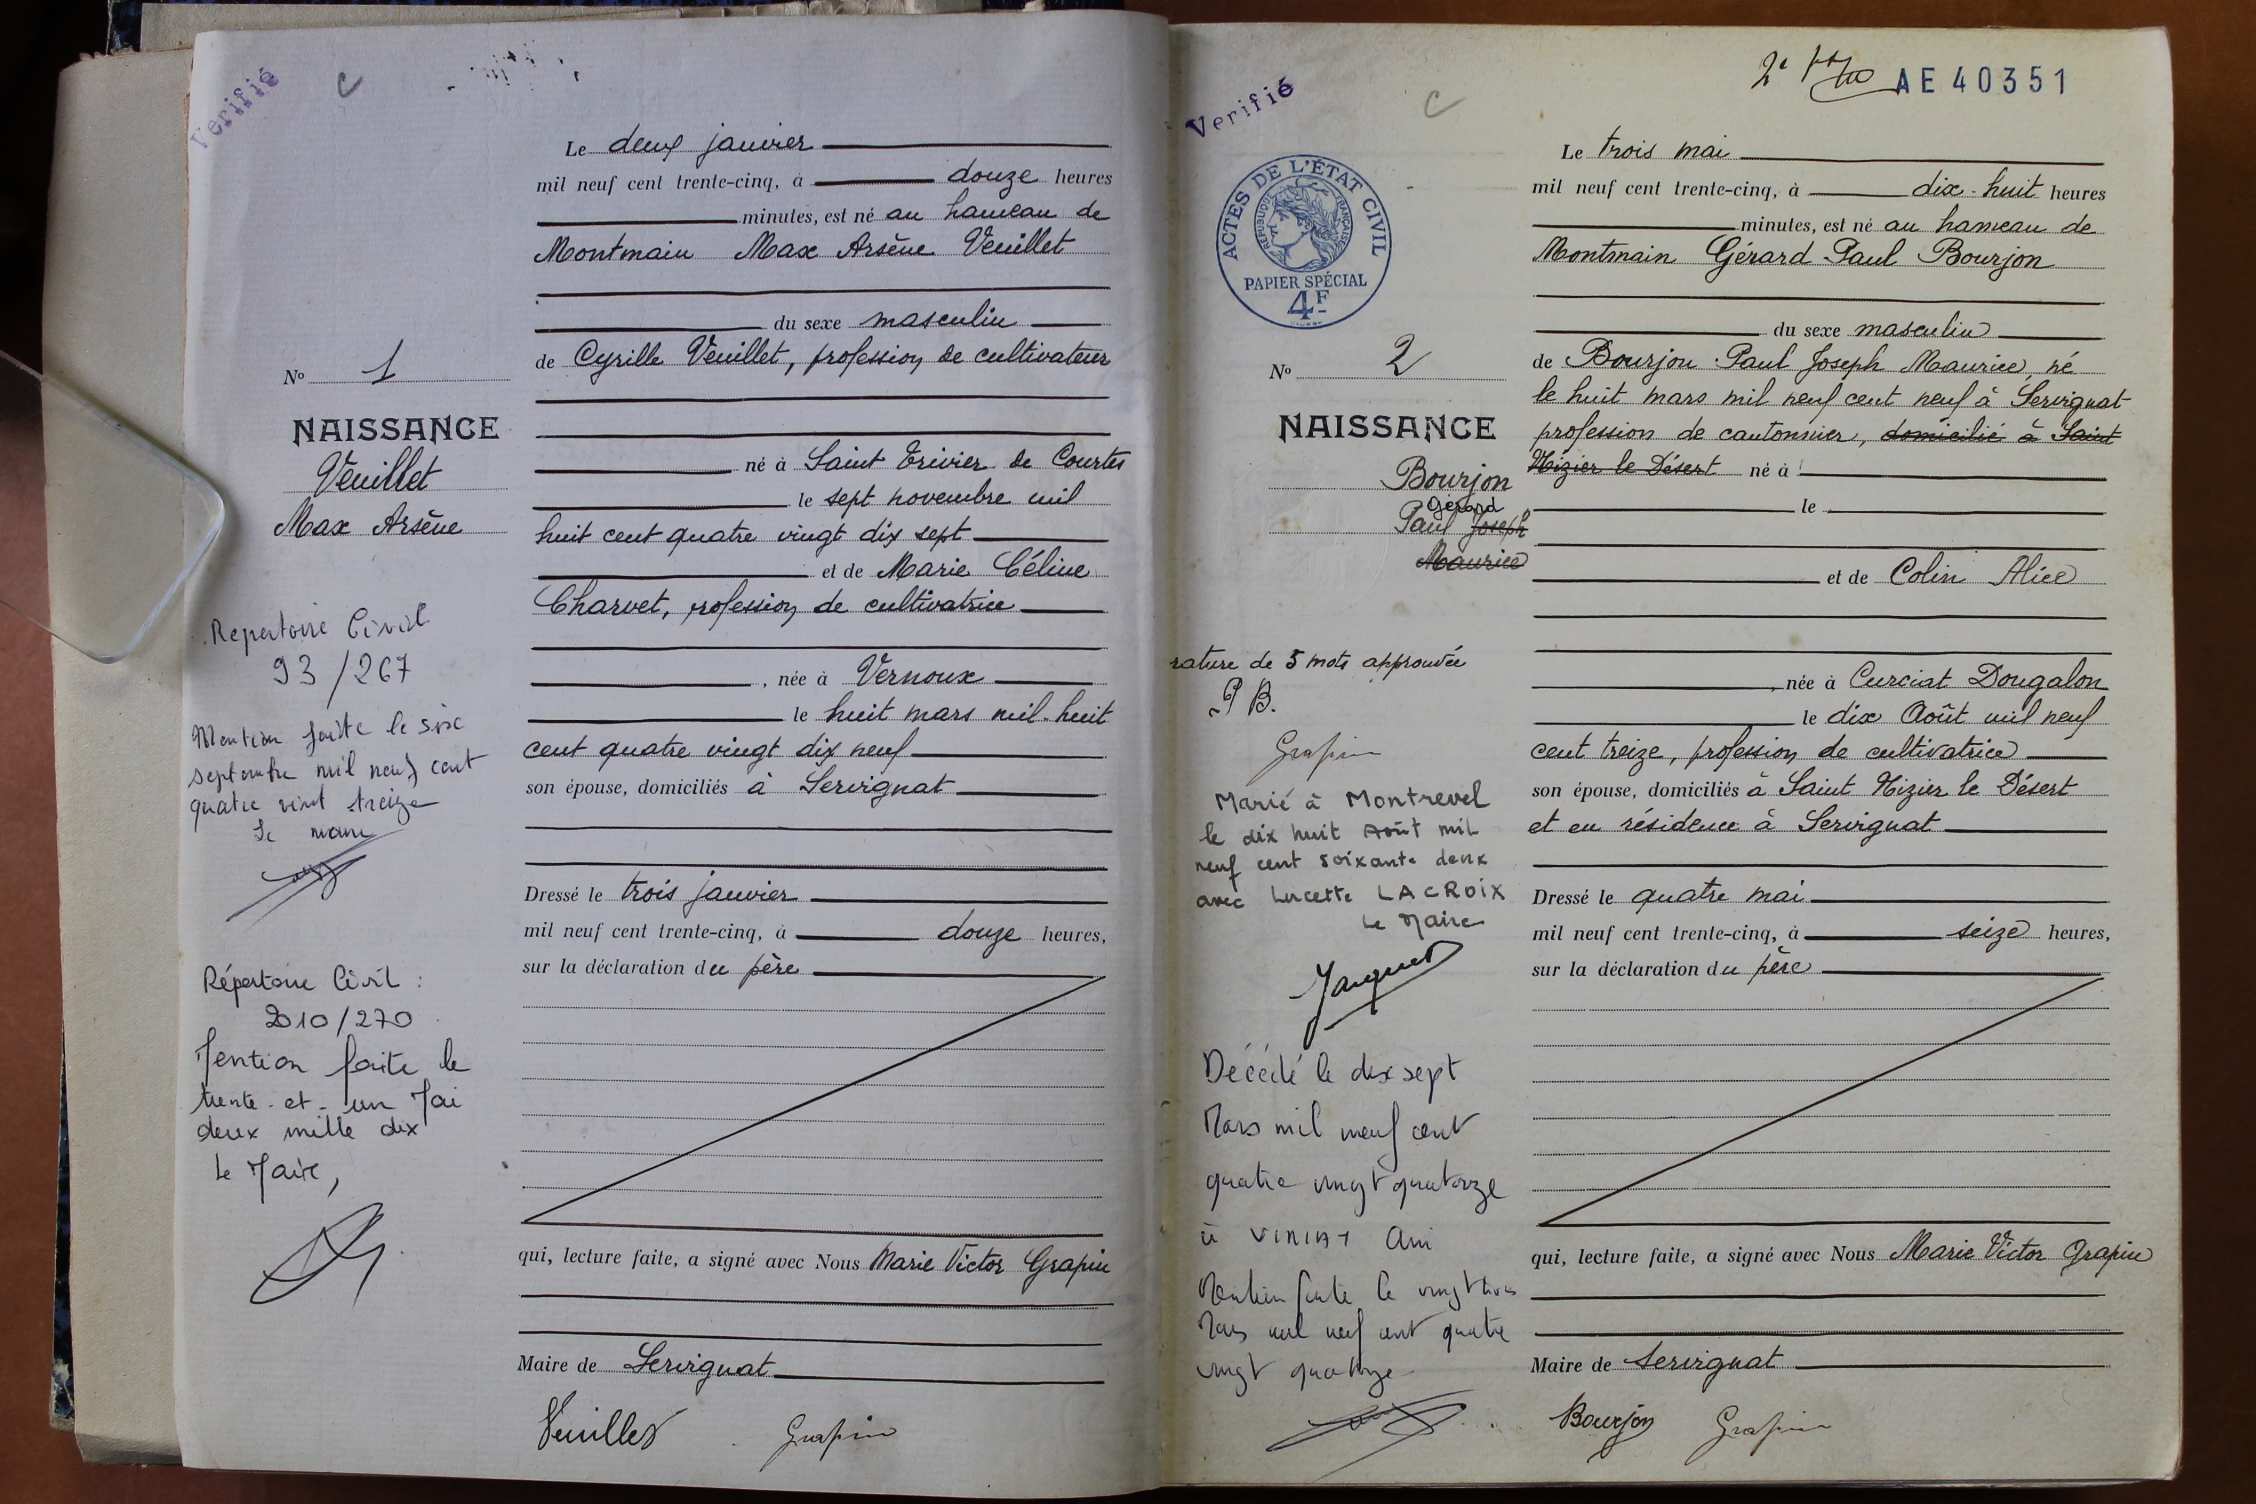 Verifié
C
Le deux janvier
mil neuf cent trente-cinq, à douze heures
minutes, est né au hameau de
Montmain Max Arsène Veuillet
du sexe masculin
de Cyrille Veuillet, profession de cultivateur
né à Saint Trivier de Courtes
le sept novembre mil
huit cent quatre vingt dix sept
et de Marie Céline
Charvet, profession de cultivatrice
, née à Vernoux
le huit mars mil huit
cent quatre vingt dix neuf
son épouse, domiciliés à Servignat
Dressé le trois janvier
mil neuf cent trente-cinq, à douze heures,
sur la déclaration du père
qui, lecture faite, a signé avec Nous Marie Victor Grapin
Maire de Servignat
Veuillet Grapin
No 1
NAISSANCE
Veuillet
Max Arsène
Repertoire Civil
93/267
Mention faite le six
septembre mil neuf cent
quatre vint treize
Le maire
Répertoire Civil :
2010/270
Mention faite le
trente-et-un Mai
deux mille dix
Le Maire,
Verifié
C
2e
AE 40351
ACTES DE L'ÉTAT CIVIL
RÉPUBLIQUE FRANÇAISE
PAPIER SPÉCIAL
4F
Le trois mai
mil neuf cent trente-cinq, à dix-huit heures
minutes, est né au hameau de
Montmain Gérard Paul Bourjon
du sexe masculin
de Bourjon Paul Joseph Maurice, né
le huit mars mil neuf cent neuf à Servignat
profession de cantonnier, domicilié à Saint
Nizier le Désert né à
le
et de Colin Alice
, née à Curciat Dongalon
le dix Août mil neuf
cent treize, profession de cultivatrice
son épouse, domiciliés à Saint Nizier le Désert
et en résidence à Servignat
Dressé le quatre mai
mil neuf cent trente-cinq, à seize heures,
sur la déclaration du père
qui, lecture faite, a signé avec Nous Marie Victor Grapin
Maire de Servignat
Bourjon Grapin
No 2
NAISSANCE
Bourjon
Gérard
Paul Joseph
Maurice
rature de 5 mots approuvée
P B.
Grapin
Marié à Montrevel
le dix huit Août mil
neuf cent soixante deux
avec Lucette LACROIX
Le Maire
Décédé le dix sept
Mars mil neuf cent
quatre vingt quatorze
à VIRIAT Ain
Mention faite le vingt trois
Mars mil neuf cent quatre
vingt quatorze